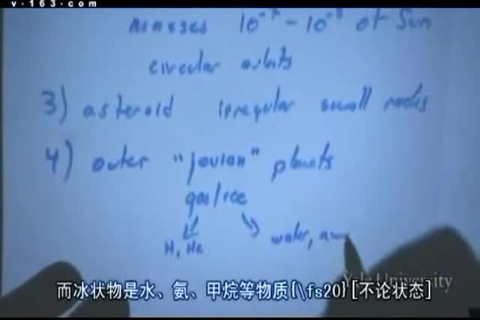 v·163.com
masses 10 - 10 of Sun
circular orbits
3) asteroid irregular small rocks
4) outer "jovian" planets
gas/ice
H, He water, am
Yale University
而冰状物是水、氨、甲烷等物质{\fs20}[不论状态]